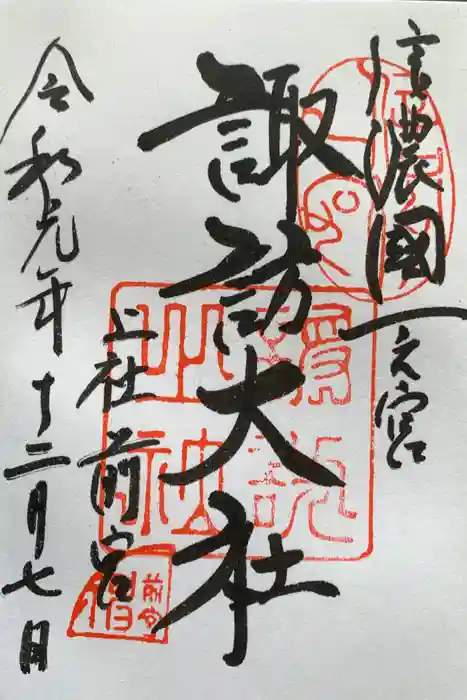 信濃國一之宮
諏訪大社
上社前宮
令和元年十二月七日
前宮